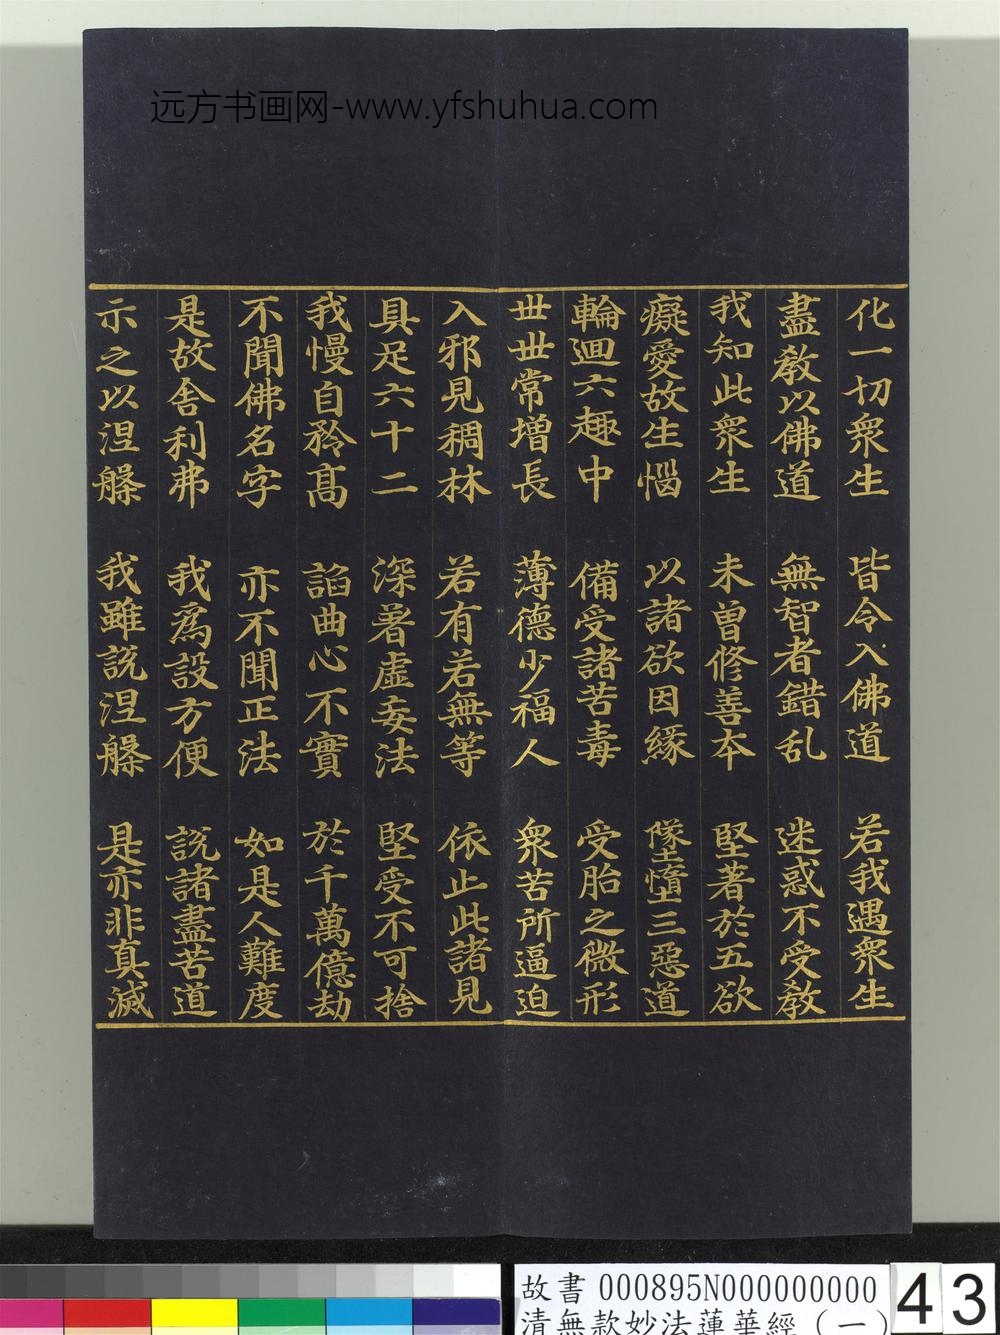 远方书画网-www.yfshuhua.com
化一切衆生 皆令入佛道 若我遇衆生
盡教以佛道 無智者錯乱 迷惑不受教
我知此衆生 未曽修善本 堅著於五欲
癡愛故生惱 以諸欲因緣 墜墮三惡道
輪迴六趣中 備受諸苦毒 受胎之微形
丗丗常增長 薄德少福人 衆苦所逼迫
入邪見稠林 若有若無等 依止此諸見
具足六十二 深著虛妄法 堅受不可捨
我慢自矜髙 諂曲心不實 於千萬億劫
不聞佛名字 亦不聞正法 如是人難度
是故舍利弗 我爲設方便 説諸盡苦道
示之以涅槃 我雖説涅槃 是亦非真滅
故書 000895N000000000
清無款妙法蓮華經（一）
43